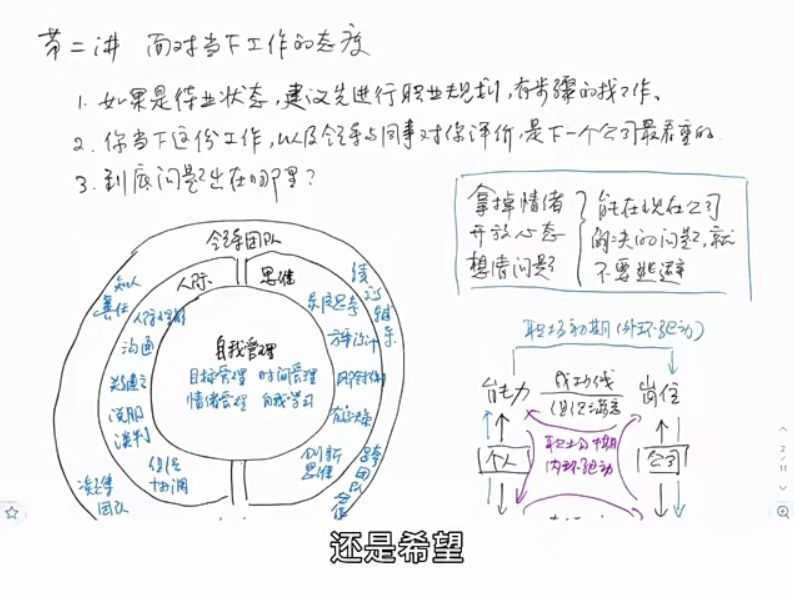 第二讲 面对当下工作的态度
1. 如果是待业状态,建议先进行职业规划,有步骤的找工作、
2. 你当下这份工作,以及领导与同事对你评价,是下一个公司最看重的.
3. 到底问题出在哪里?
拿掉情绪
开放心态
想清问题
能在现在公司
解决的问题,就
不要逃避
领导团队
人际
思维
知人
善任
人际理解
沟通
关系建立
说服
谈判
信任
协调
凝聚
团队
自我管理
目标管理 时间管理
情绪管理 自我学习
系统思考
方案设计
风险控制
有效决策
创新
思维
绩效
跨
团队
合作
职场初期(外环驱动)
能力
成功找
信任满意
岗位
个人
职业中期
内环驱动
公司
2/11
还是希望